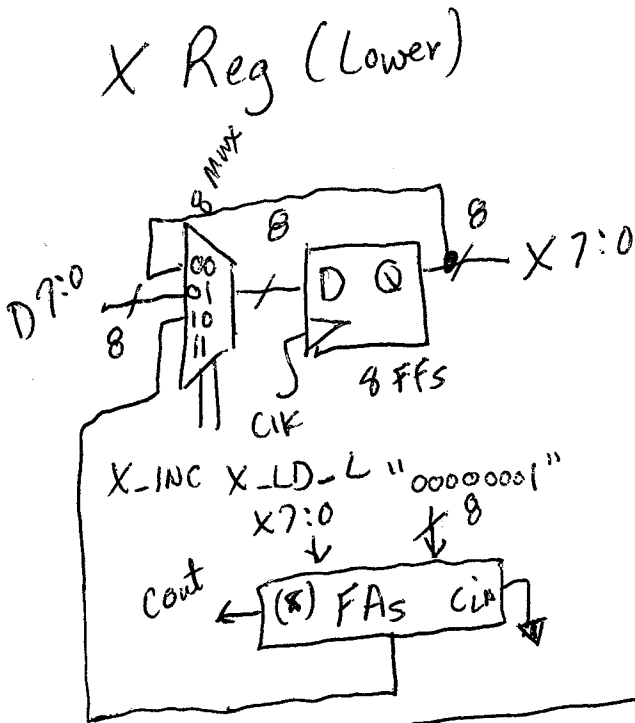 X Reg (Lower)
8 MUX
8
8
D7:0
8
00
01
10
11
D Q
X 7:0
8 FFs
Clk
X_INC X_LD_L "00000001"
X7:0
8
Cout
(8) FAs Cin